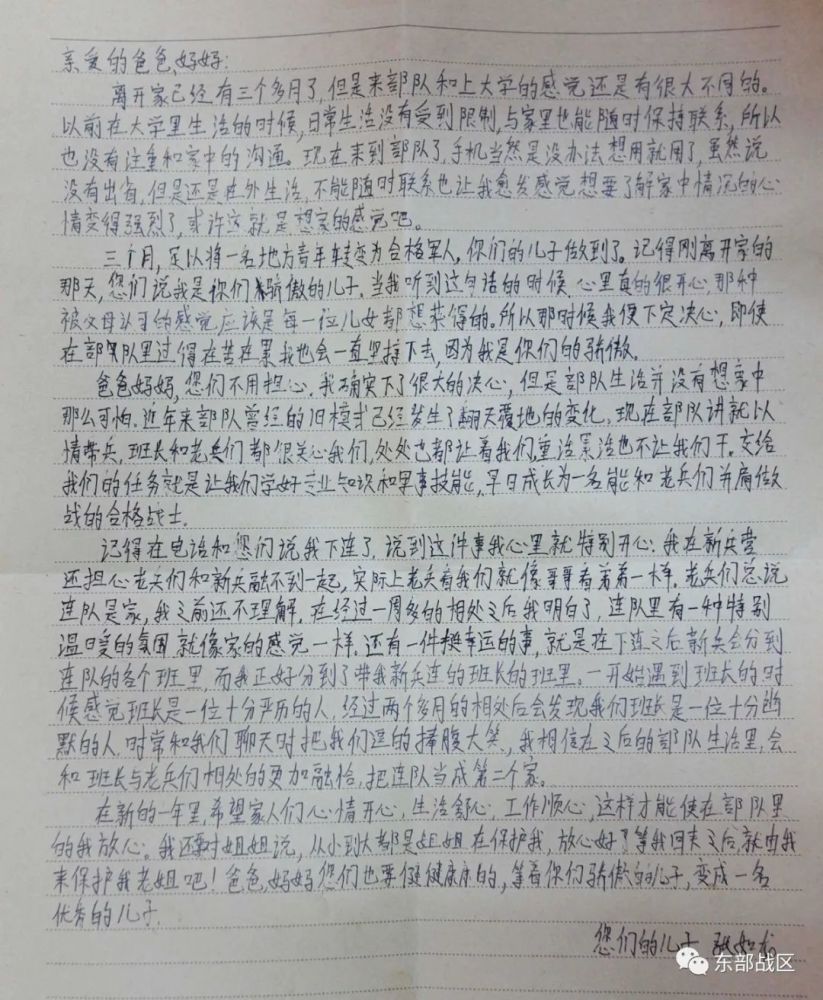 亲爱的爸爸、妈妈:
离开家已经有三个多月了,但是来部队和上大学的感觉还是有很大不同的。
以前在大学里生活的时候,日常生活没有受到限制,与家里也能随时保持联系,所以
也没有注重和家中的沟通。现在来到部队了,手机当然是没办法想用就用了,虽然说
没有出省,但是还是在外生活,不能随时联系也让我愈发感觉想要了解家中情况的心
情变得强烈了,或许这就是想家的感觉吧。
三个月,足以将一名地方青年转变为合格军人,你们的儿子做到了。记得刚离开家的
那天,您们说我是你们骄傲的儿子,当我听到这句话的时候,心里真的很开心,那种
被父母认可的感觉应该是每一位儿女都想获得的。所以那时候我便下定决心,即使
在部队里过得在苦在累我也会一直坚持下去,因为我是你们的骄傲。
爸爸妈妈,您们不用担心,我确实下了很大的决心,但是部队生活并没有想象中
那么可怕,近年来部队曾经的旧模式已经发生了翻天覆地的变化,现在部队讲就以
情带兵,班长和老兵们都很关心我们,处处也都让着我们,重活累活也不让我们干。交给
我们的任务就是让我们学好专业知识和军事技能,早日成长为一名能和老兵们并肩做
战的合格战士。
记得在电话和您们说我下连了,说到这件事我心里就特别开心:我在新兵营
还担心老兵们和新兵融不到一起,实际上老兵看我们就像哥哥看弟弟一样。老兵们总说
连队是家,我之前还不理解,在经过一周多的相处之后我明白了,连队里有一种特别
温暖的氛围,就像家的感觉一样。还有一件挺幸运的事,就是在下连之后新兵会分到
连队的各个班里,而我正好分到了带我新兵连的班长的班里。一开始遇到班长的时
候感觉班长是一位十分严厉的人,经过两个多月的相处后会发现我们班长是一位十分幽
默的人,时常和我们聊天时把我们逗的捧腹大笑,我相信在之后的部队生活里,会
和班长与老兵们相处的更加融恰,把连队当成第二个家。
在新的一年里,希望家人们心情开心,生活舒心,工作顺心,这样才能使在部队里
的我放心。我还要对姐姐说,从小到大都是姐姐在保护我,放心好了等我回来之后,就由我
来保护我老姐吧!爸爸、妈妈您们也要健健康康的,等着你们骄傲的儿子,变成一名
优秀的儿子。
您们的儿子
东部战区